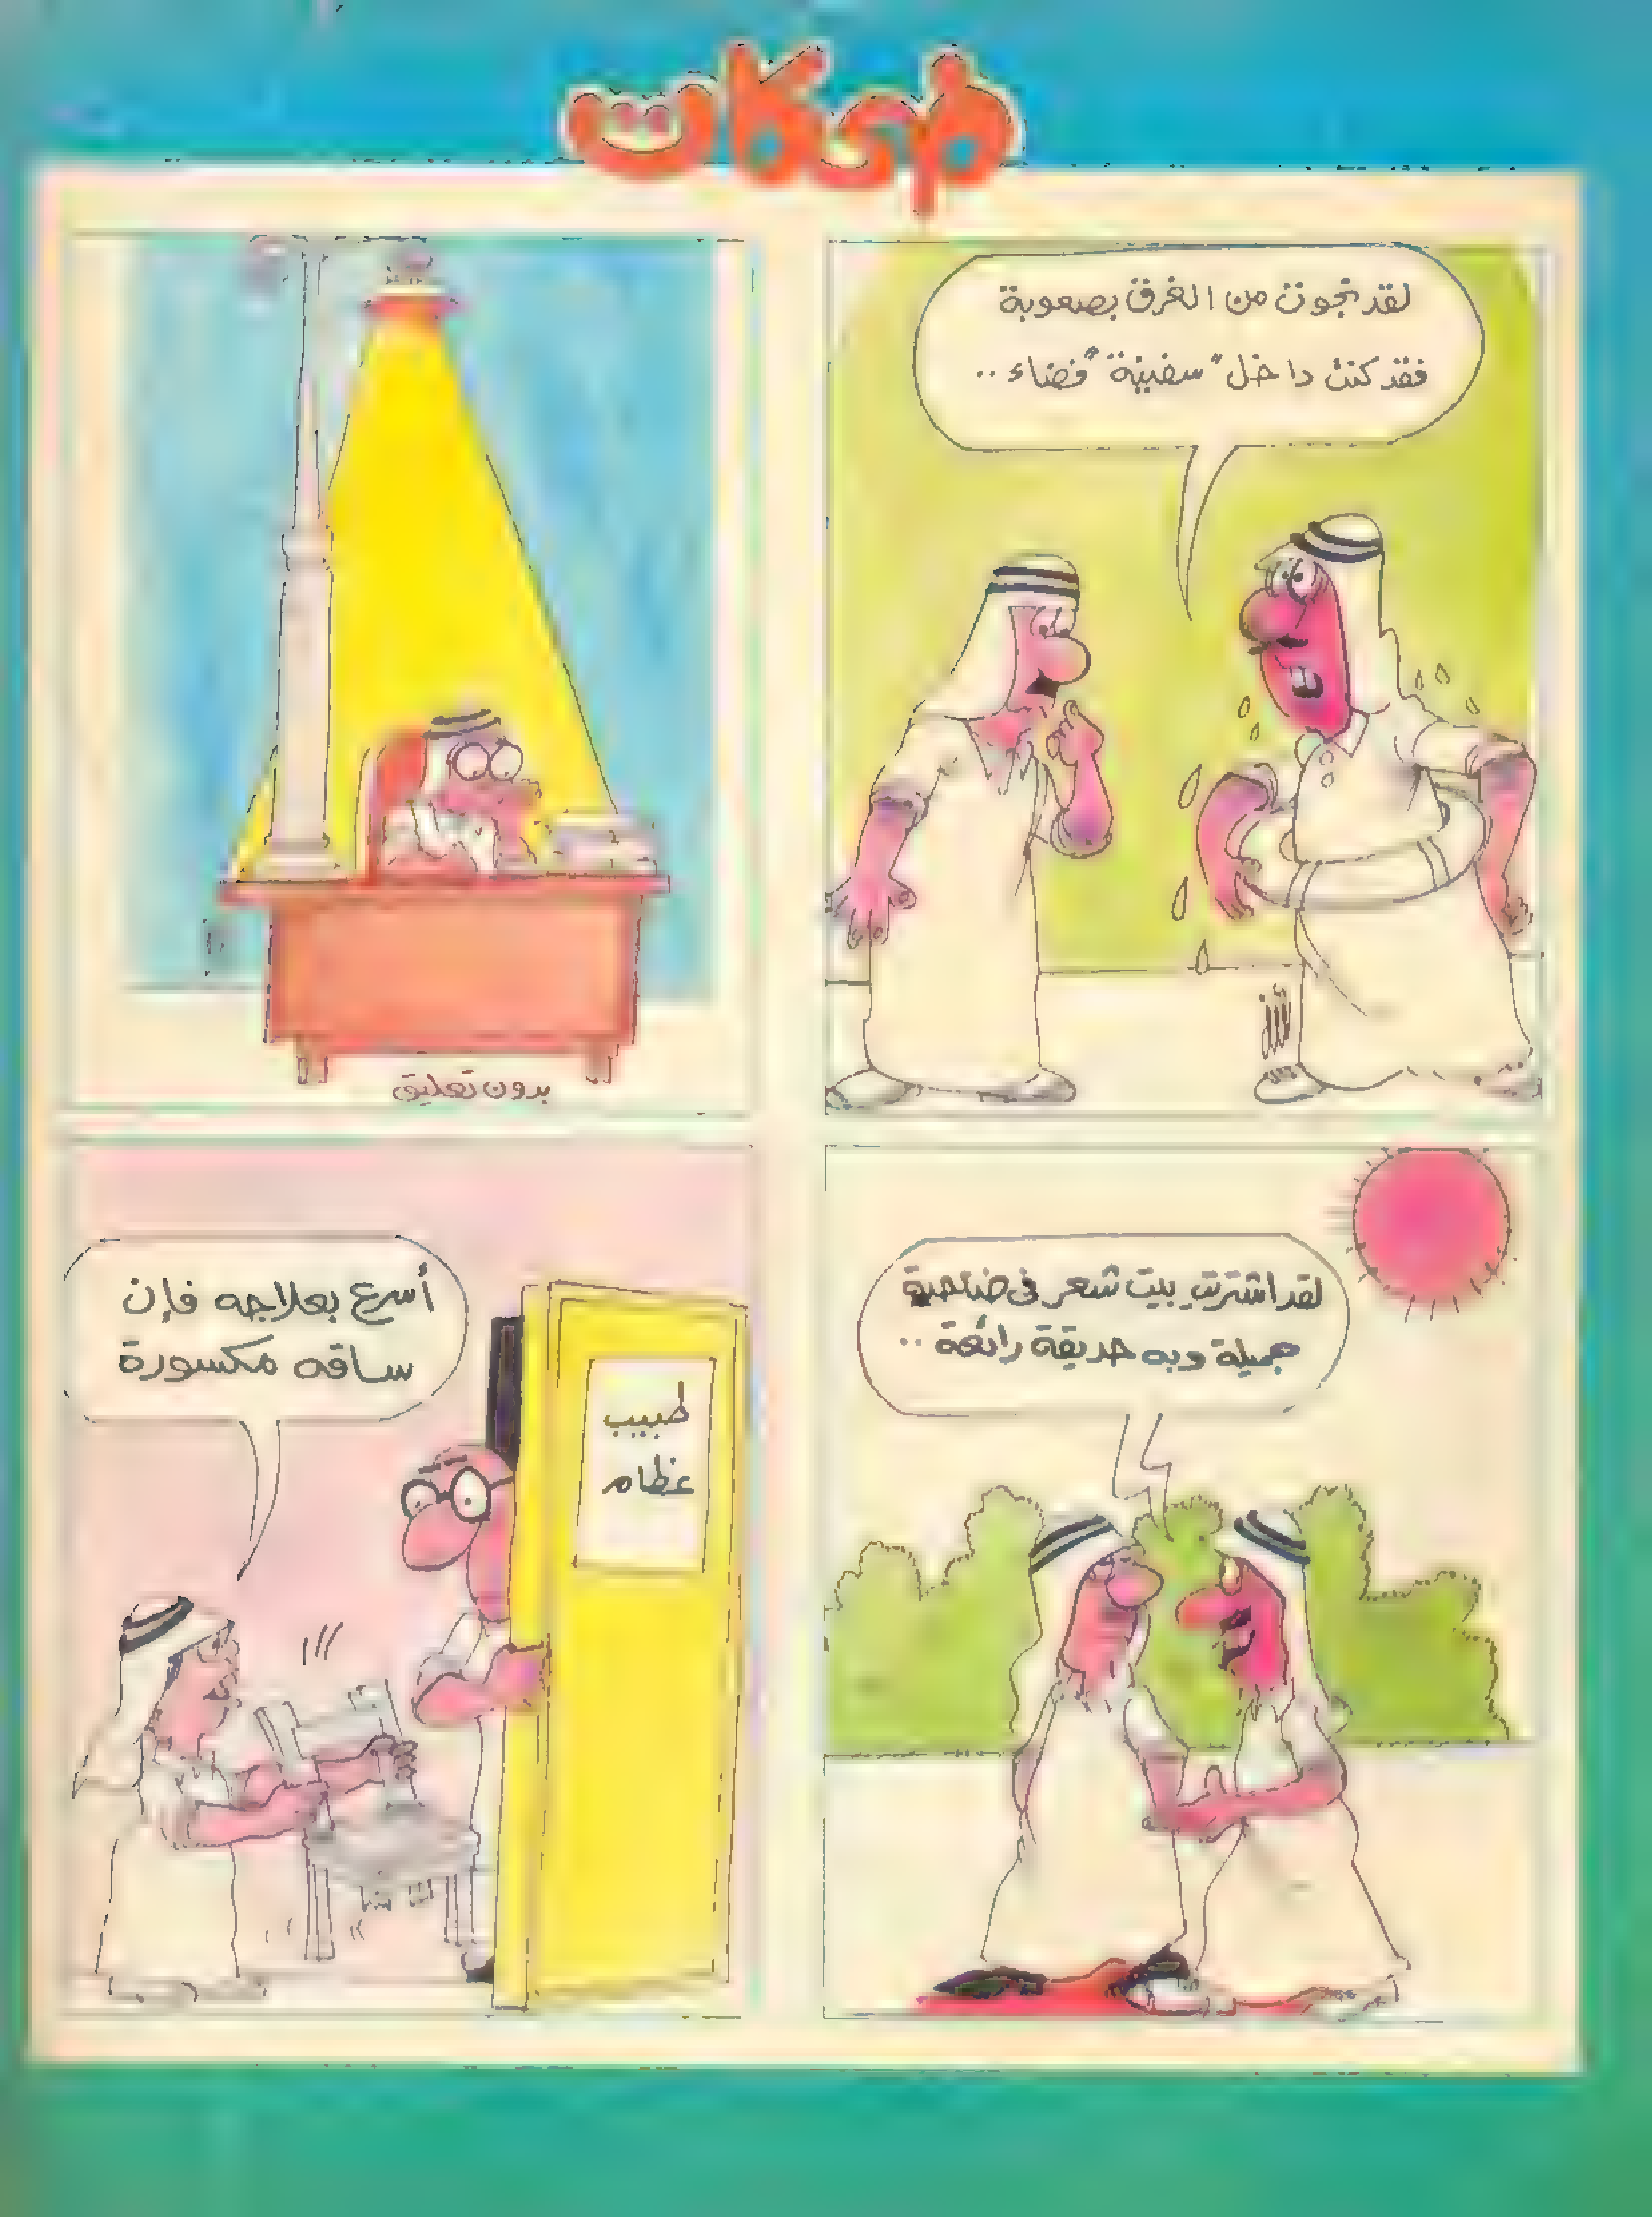 ضحكات
لقد نجوت من الغرق بصعوبة
فقد كنت داخل "سفينة" فضاء ..
بدون تعليق
لقد اشتريت بيت شعر فى ضاحية
جميلة وبه حديقة رائعة ..
أسرع بعلاجه فإن
ساقه مكسورة
طبيب
عظام